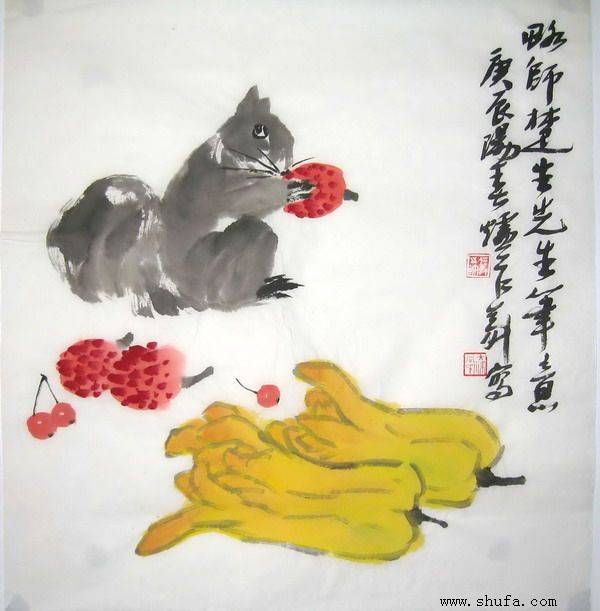 略師楚生先生筆意
庚辰陽春寫
www.shufa.com